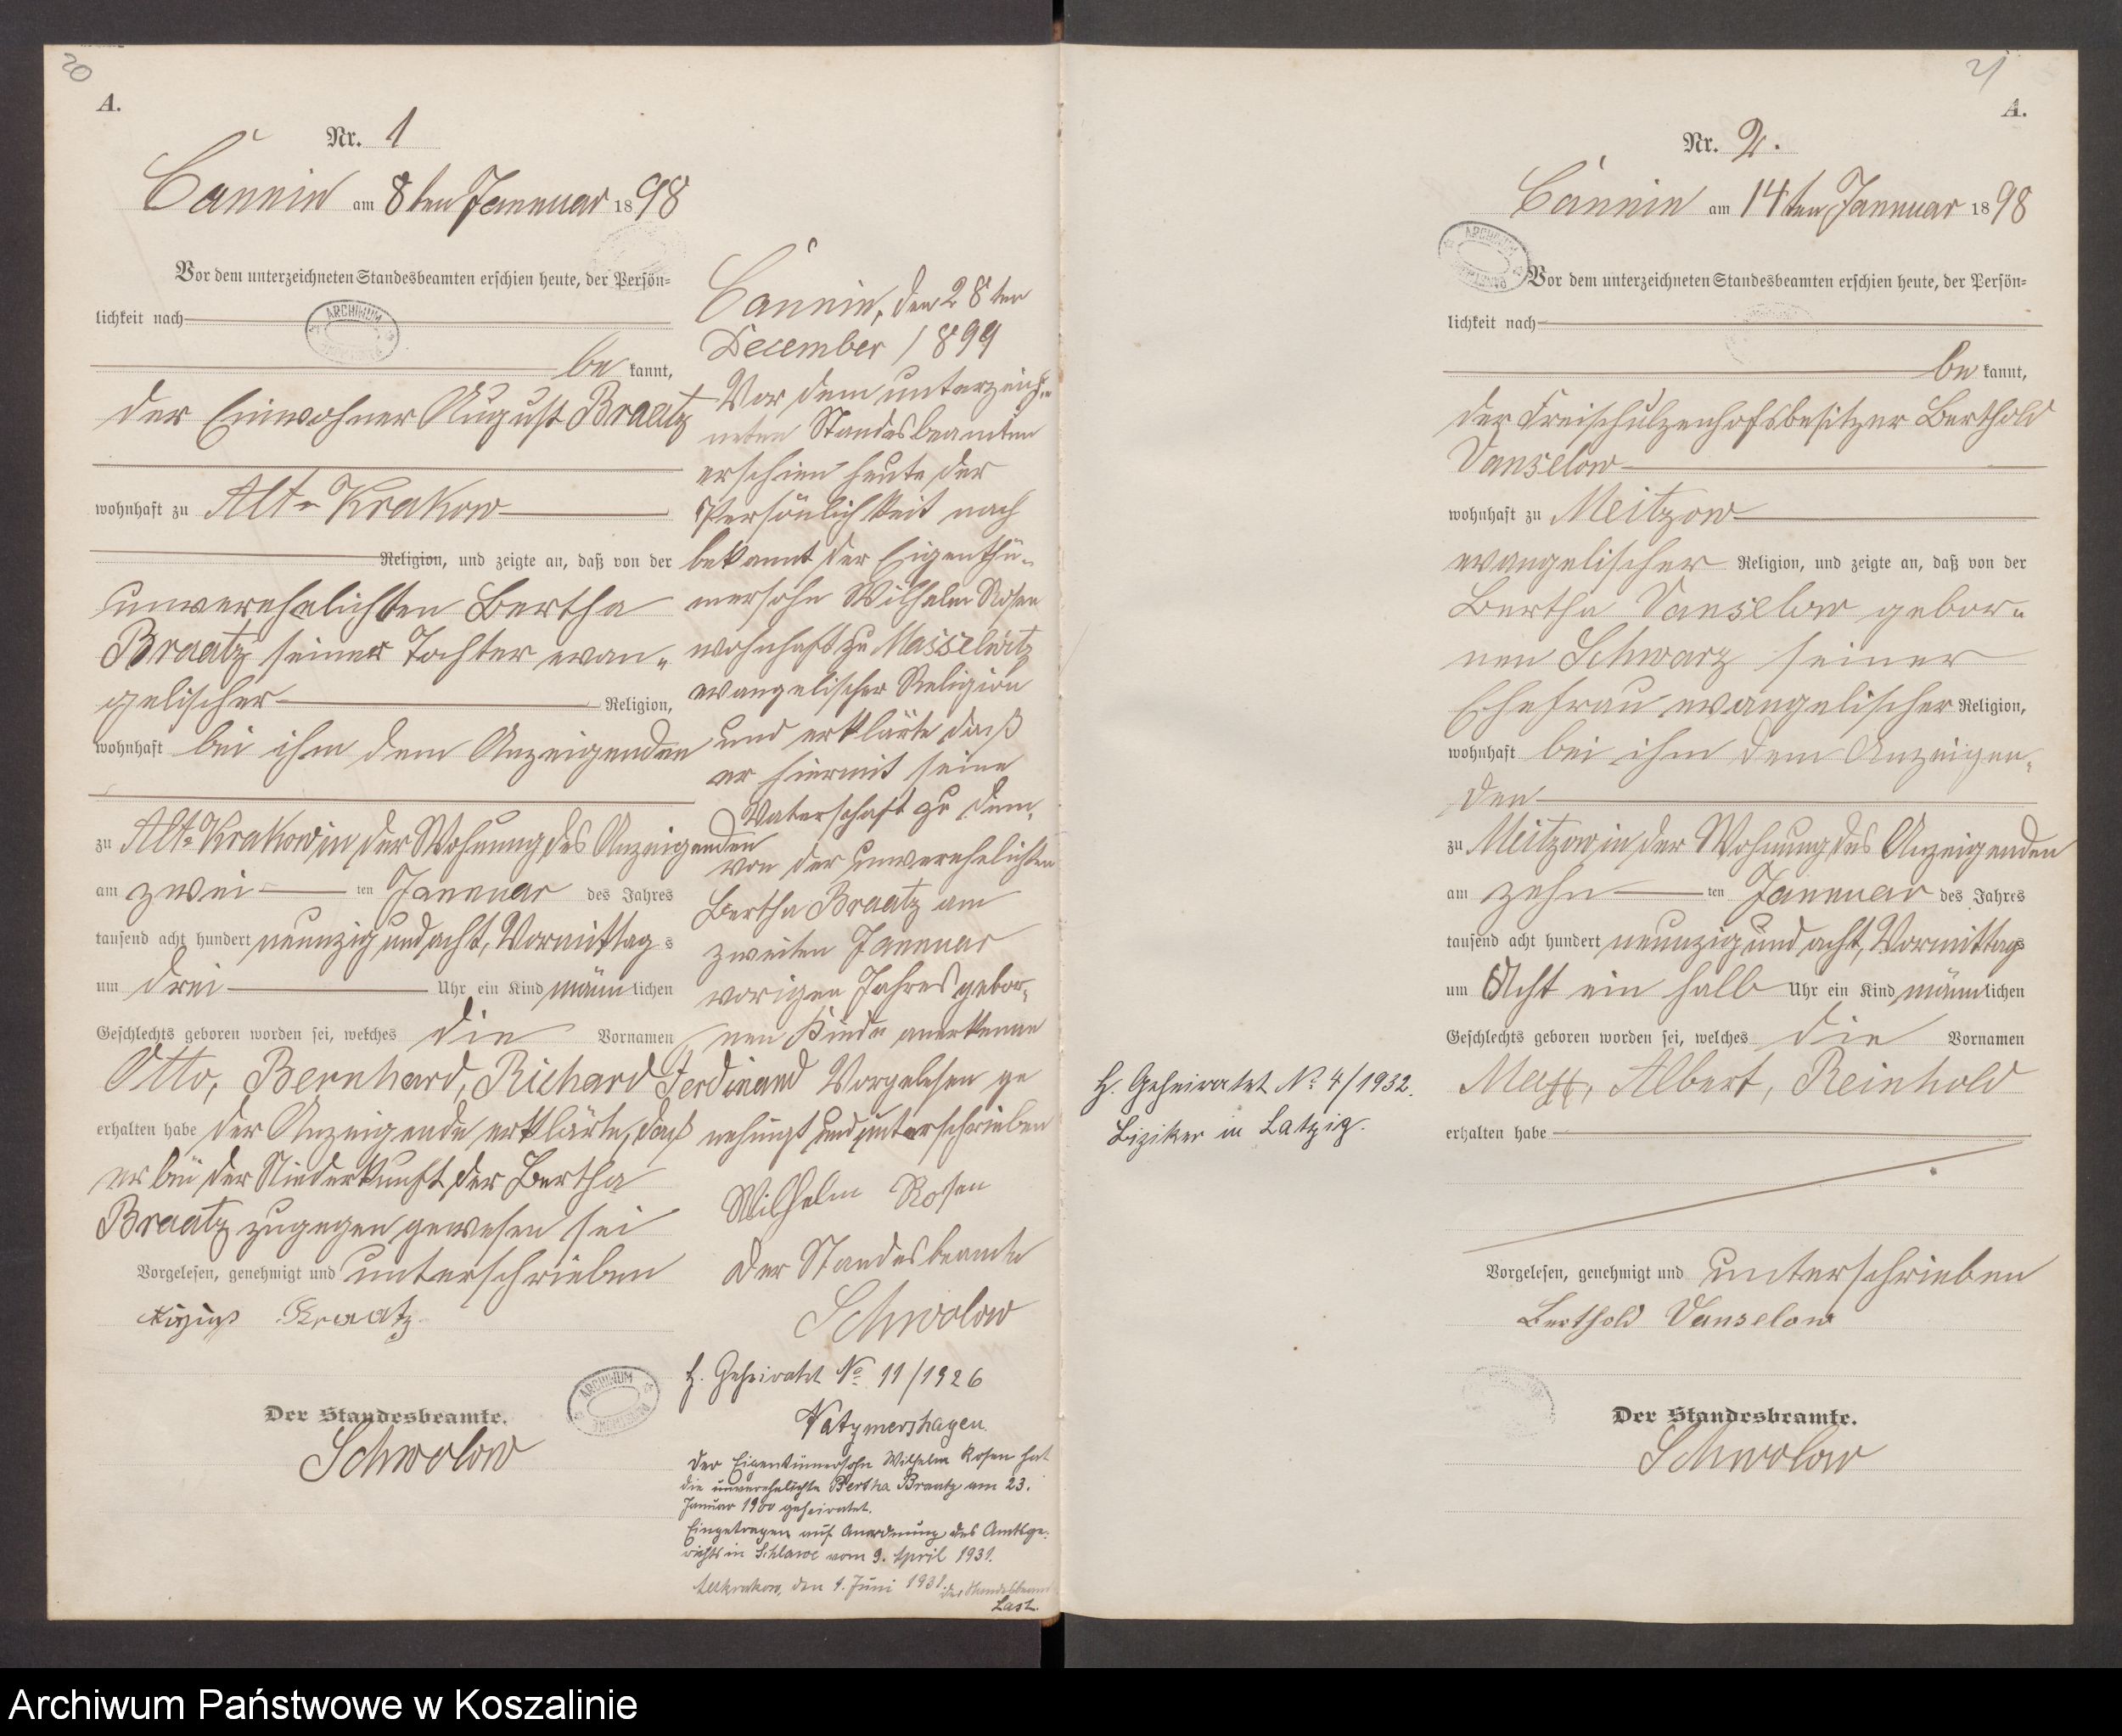 20
A.
Nr. 1
Cannin am 8ten Januar 1898
Vor dem unterzeichneten Standesbeamten erschien heute, der Persön=
lichkeit nach
be kannt,
der Einwohner August Braatz
wohnhaft zu Alt-Krakow
Religion, und zeigte an, daß von der
unverehelichten Bertha
Braatz seiner Tochter evan-
gelischer Religion,
wohnhaft bei ihm dem Anzeigenden
zu Alt-Krakow in der Wohnung des Anzeigenden
am zwei ten Januar des Jahres
tausend acht hundert neunzig und acht, Vormittags
um drei Uhr ein Kind männlichen
Geschlechts geboren worden sei, welches die Vornamen
Otto, Bernhard, Richard Ferdinand
erhalten habe der Anzeigende erklärte, daß
er bei der Niederkunft der Bertha
Braatz zugegen gewesen sei
Vorgelesen, genehmigt und unterschrieben
August Braatz
Der Standesbeamte.
Schwolow
Cannin, den 28ten
December 1899
Vor dem unterzeich-
neten Standesbeamten
erschien heute der
Persönlichkeit nach
bekannt der Eigenthü-
mersohn Wilhelm Rosen
wohnhaft zu Masselwitz
evangelischer Religion
und erklärte daß
er hiermit seine
Vaterschaft zu dem,
von der unverehelichten
Bertha Braatz am
zweiten Januar
vorigen Jahres gebor-
nen Kinde anerkenne
Vorgelesen ge
nehmigt und unterschrieben
Wilhelm Rosen
Der Standesbeamte
Schwolow
H. Geheiratet No 11/1926
Natzmershagen.
Der Eigentümersohn Wilhelm Rosen hat
die unverehelichte Bertha Braatz am 23.
Januar 1900 geheiratet.
Eingetragen auf Anordnung des Amtsge-
richts in Schlawe vom 9. April 1931.
Altkrakow, den 1. Juni 1931. Der Standesbeamte
Last.
21
A.
Nr. 2.
Cannin am 14ten Januar 1898
ARCHIWUM
Vor dem unterzeichneten Standesbeamten erschien heute, der Persön=
lichkeit nach
be kannt,
der Freischulzenhofsbesitzer Berthold
Vanselow
wohnhaft zu Meitzow
evangelischer Religion, und zeigte an, daß von der
Bertha Vanselow gebor-
nen Schwarz seiner
Ehefrau evangelischer Religion,
wohnhaft bei ihm dem Anzeigen-
den
zu Meitzow in der Wohnung des Anzeigenden
am zehn ten Januar des Jahres
tausend acht hundert neunzig und acht, Vormittags
um Acht ein halb Uhr ein Kind männlichen
Geschlechts geboren worden sei, welches die Vornamen
Max, Albert, Reinhold
erhalten habe
H. Geheiratet No 4/1932.
Liziker in Latzig.
Vorgelesen, genehmigt und unterschrieben
Berthold Vanselow
Der Standesbeamte.
Schwolow
Archiwum Państwowe w Koszalinie